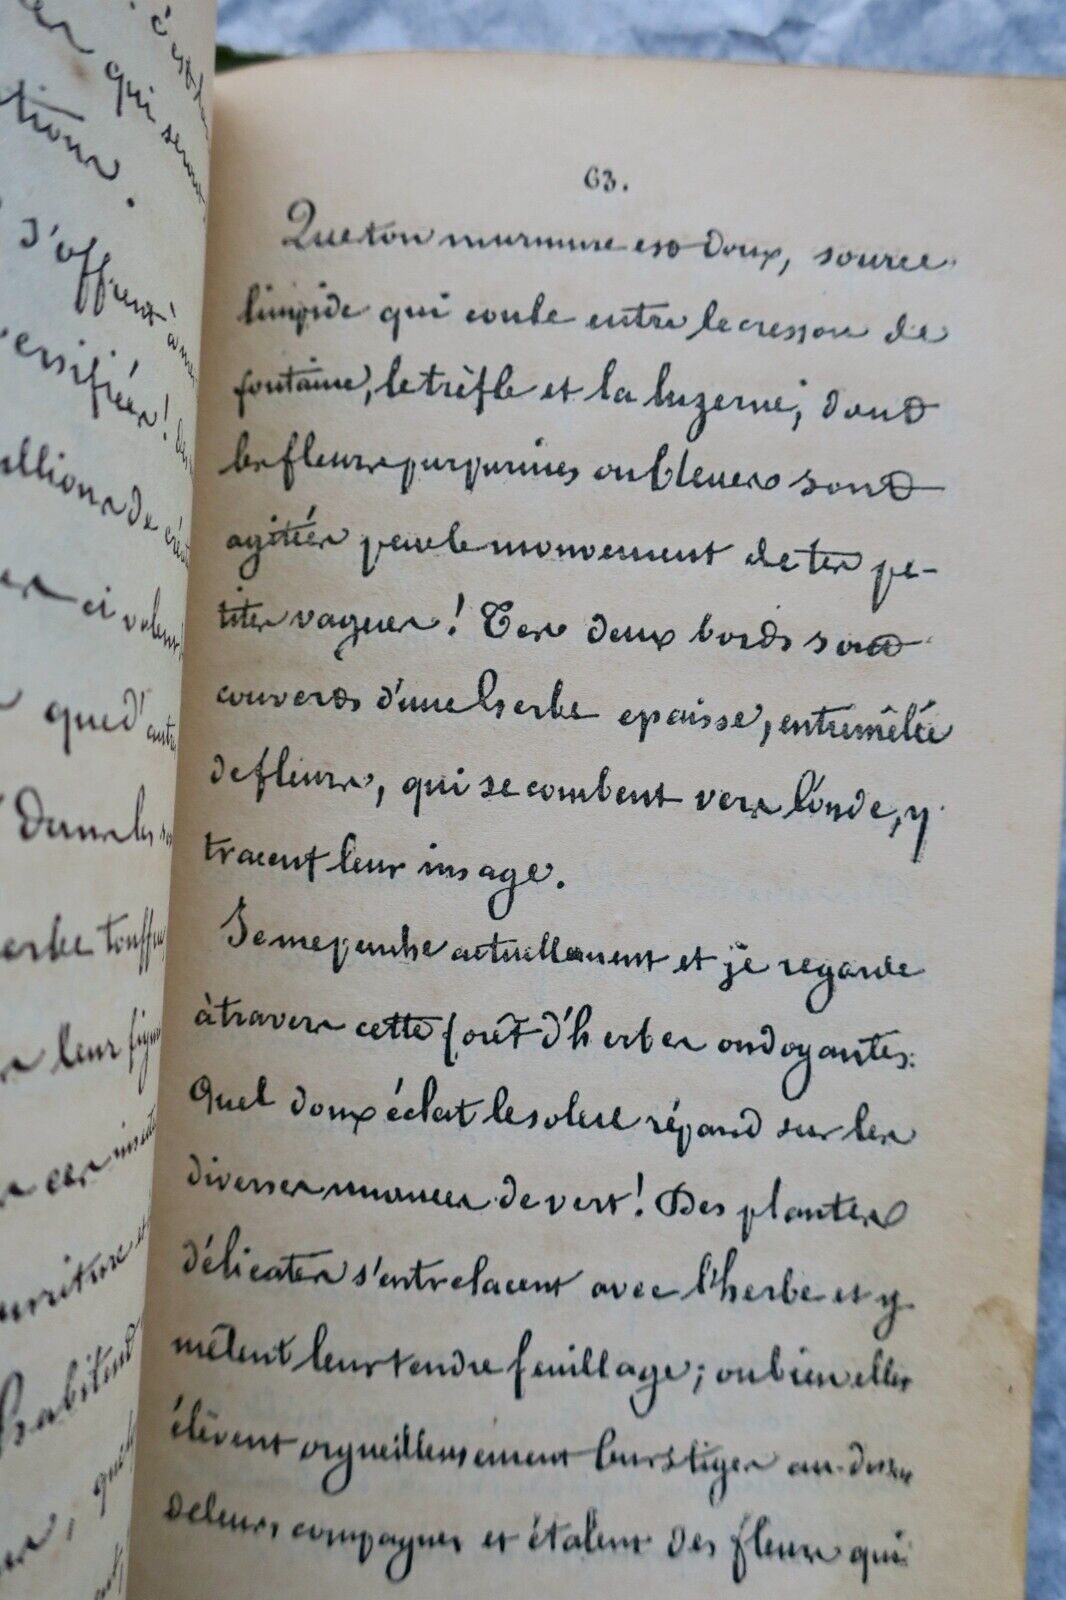 c'est
qui seron
tions.
s'offrent à
ersifiées!
illions de
ci volent
que d'autre
Dans les
erbe touffue
leur figure
ces insectes
urriture et
habitent
63.
Que ton murmure est doux, source
limpide qui coule entre le cresson de
fontaine, le trèfle et la luzerne, dont
les fleurs purpurines ou bleues sont
agitées par le mouvement de tes pe-
tites vagues! Tes deux bords sont
couverts d'une herbe epaisse, entremêlée
de fleurs, qui se combent vers l'onde, y
tracent leur image.
Je me penche actuellement et je regarde
à travers cette forêt d'herbes ondoyantes.
Quel doux éclat le soleil répand sur les
diverses nuances de vert! Des plantes
délicates s'entrelacent avec l'herbe et y
mêlent leur tendre feuillage; ou bien elles
élèvent orgueilleusement leurs tiges au-dessus
de leurs compagnes et étalent des fleurs qui